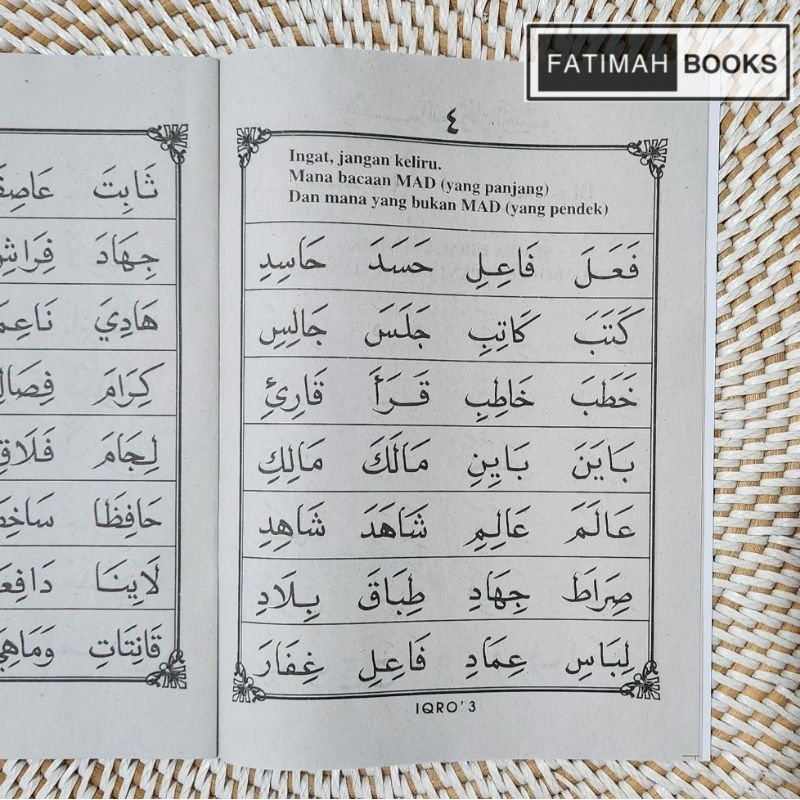 FATIMAH BOOKS
٤
Ingat, jangan keliru.
Mana bacaan MAD (yang panjang)
Dan mana yang bukan MAD (yang pendek)
فَعَلَ فَاعِلِ حَسَدَ حَاسِدِ
كَتَبَ كَاتِبِ جَلَسَ جَالِسِ
خَطَبَ خَاطِبِ قَرَأَ قَارِئِ
بَايَنَ بَايِنِ مَالَكَ مَالِكِ
عَالَمَ عَالِمِ شَاهَدَ شَاهِدِ
صِرَاطَ جِهَادِ طِبَاقَ بِلَادِ
لِبَاسِ عِمَادِ فَاعِلِ غِفَارَ
IQRO' 3
ثَابِتَ
جِهَادَ
هَادِيَ
كِرَامَ
لِجَامَ
حَافِظَا
لَايِنَا
قَانِتَاتِ وَمَاهِيَ